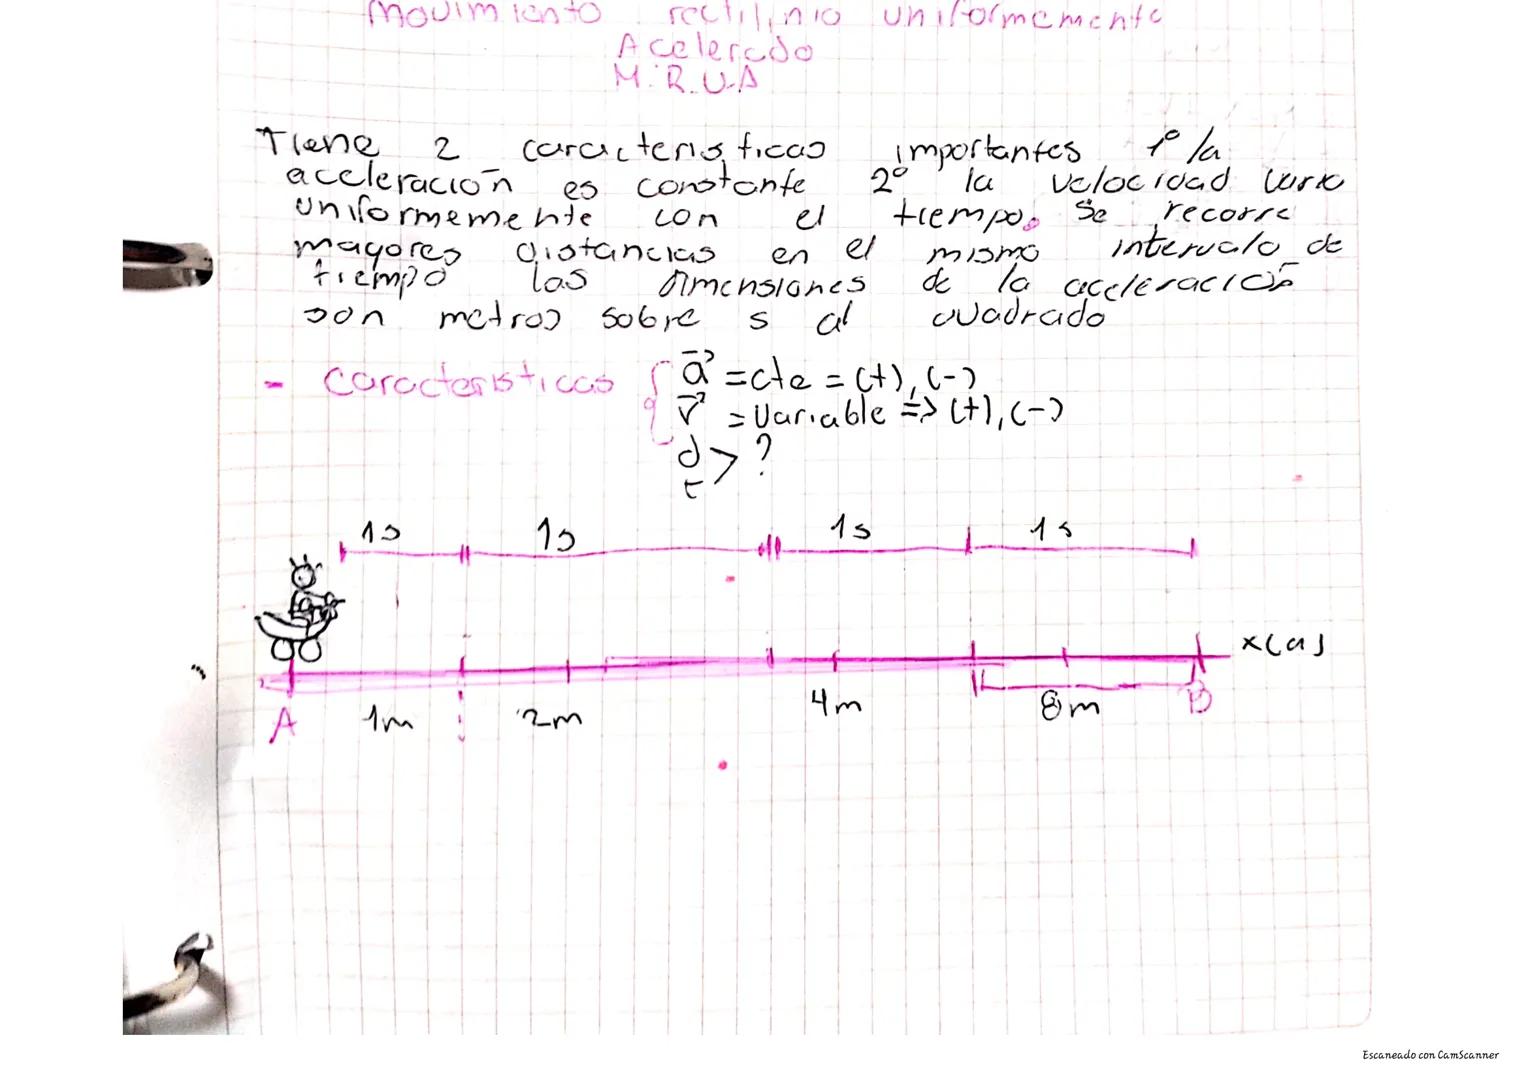 Movimiento rectilinio uniformemente
Acelerado
M.R.U.A
Tiene 2 caracteristicas importantes 1º la
aceleración es constante 2º la velocidad varia
uniformemente con el tiempo. Se recorre
mayores distancias en el mismo intervalo de
tiempo las dimensiones de la aceleración
son metros sobre s al cuadrado
- caracteristicas { a⃗ = cte = (+), (-)
v⃗ = Variable => (+), (-)
d > ?
t
1s 1s 1s 1s
x(a)
A 1m 2m 4m 8m B
Escaneado con CamScanner